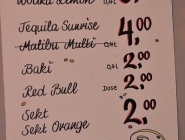 Wodka Lemon
Tequila Sunrise 4,00
Malibu Multi 0,4l
Baki 0,4l 2,00
Red Bull Dose 2,00
Sekt 2,00
Sekt Orange